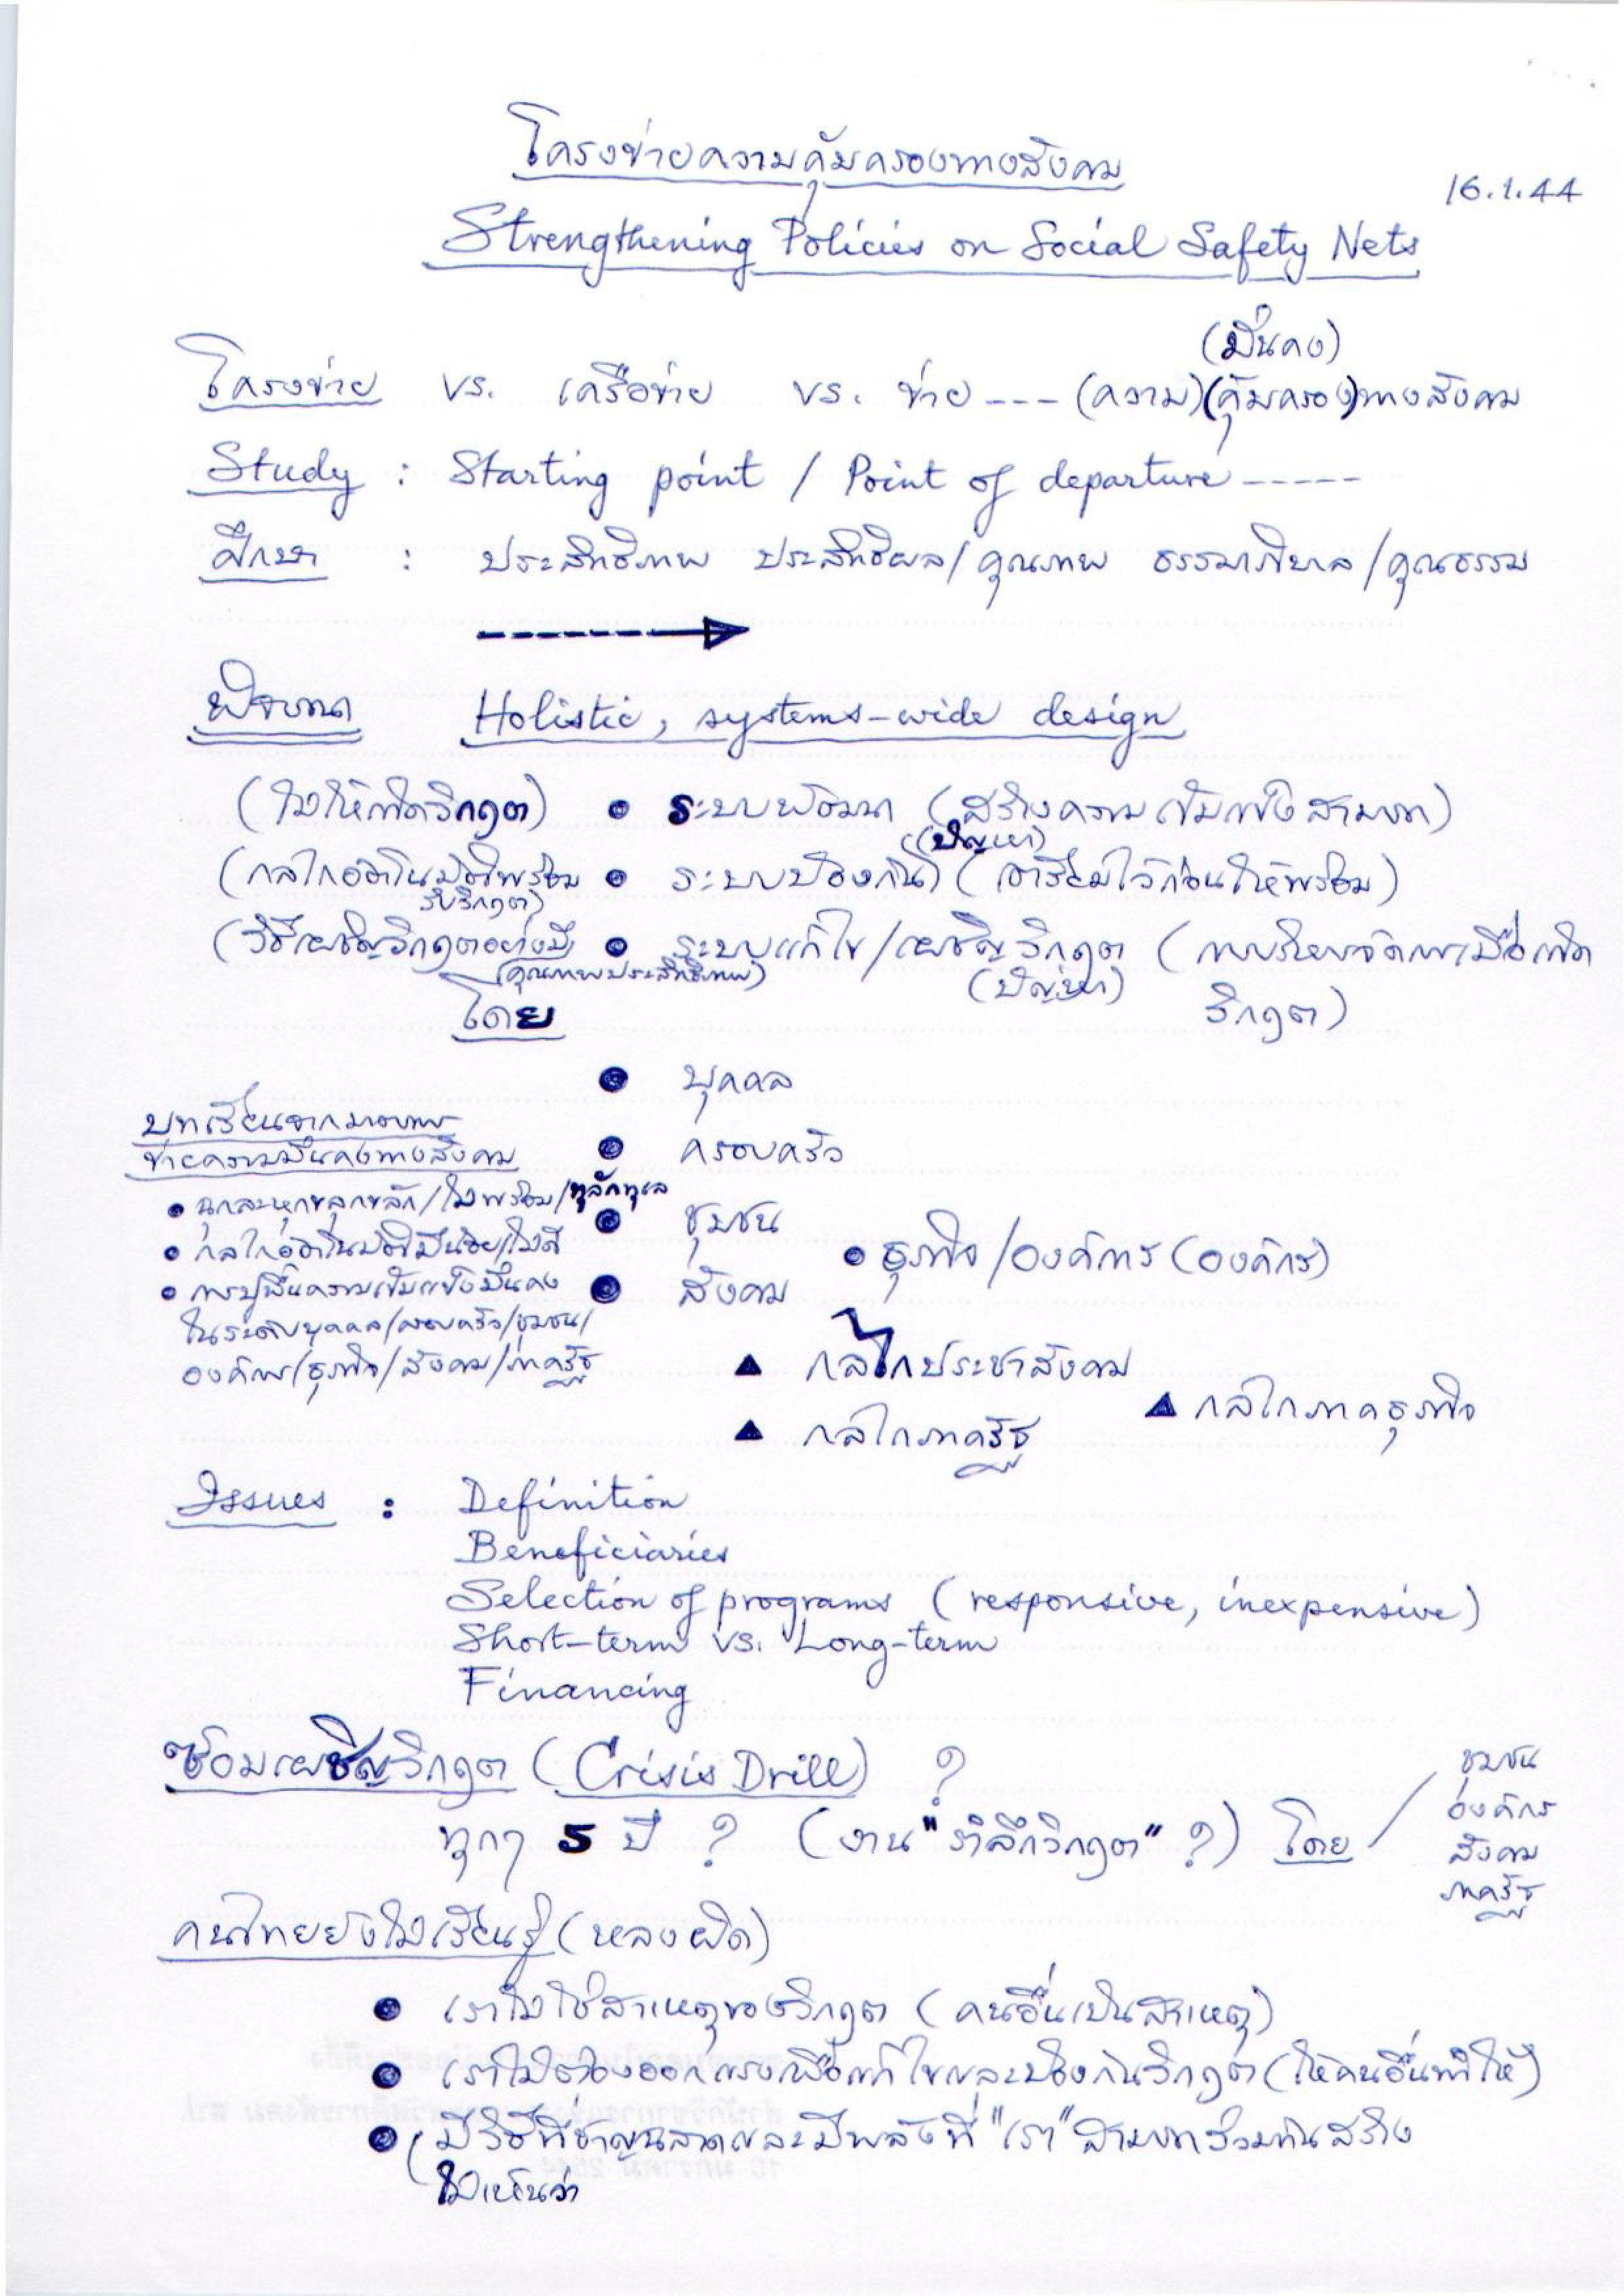 โครงข่ายความคุ้มครองทางสังคม
16.1.44
Strengthening Policies on Social Safety Nets
(มั่นคง)
โครงข่าย vs. เครือข่าย vs. ข่าย --- (ความ)(คุ้มครอง)ทางสังคม
Study : Starting point / Point of departure -----
ศึกษา : ประสิทธิภาพ ประสิทธิผล/คุณภาพ ธรรมาภิบาล/คุณธรรม
พิจารณา Holistic, systems-wide design
(ไม่ให้เกิดวิกฤต) • ระบบพัฒนา (สร้างความเข้มแข็งสามารถ)
(ปัญหา)
(กลไกอัตโนมัติพร้อม • ระบบป้องกัน (เตรียมไว้ก่อนให้พร้อม)
รับวิกฤต)
(วิธีเผชิญวิกฤตอย่างมี • ระบบแก้ไข/เผชิญวิกฤต (การบริหารจัดการเมื่อเกิด
คุณภาพประสิทธิภาพ) (ปัญหา) วิกฤต)
โดย
• บุคคล
บทเรียนจากมาตรการ
• ครอบครัว
ข่ายความมั่นคงทางสังคม
• ฉุกละหุกขลุกขลัก/ไม่พร้อม/ทุลักทุเล
• ชุมชน
• กลไกอัตโนมัติมีน้อย/ไม่ดี
• ธุรกิจ/องค์การ (องค์กร)
• การปูพื้นความเข้มแข็งมั่นคง
• สังคม
ในระดับบุคคล/ครอบครัว/ชุมชน/
องค์กร/ธุรกิจ/สังคม/ภาครัฐ
▲ กลไกประชาสังคม
▲ กลไกภาคธุรกิจ
▲ กลไกภาครัฐ
Issues : Definition
Beneficiaries
Selection of programs (responsive, inexpensive)
Short-term vs. Long-term
Financing
ซ้อมเผชิญวิกฤต (Crisis Drill) ?
ทุกๆ 5 ปี ? (งาน "รำลึกวิกฤต" ?) โดย /
ชุมชน
องค์กร
สังคม
ภาครัฐ
คนไทยยังไม่เรียนรู้ (หลงผิด)
• เราไม่ใช่สาเหตุของวิกฤต (คนอื่นเป็นสาเหตุ)
• เราไม่ต้องออกแรงเพื่อแก้ไขและป้องกันวิกฤต (ให้คนอื่นทำให้)
• (มีวิธีที่ชาญฉลาดและมีพลังที่ "เรา" สามารถร่วมกันสร้าง
ไม่เห็นว่า